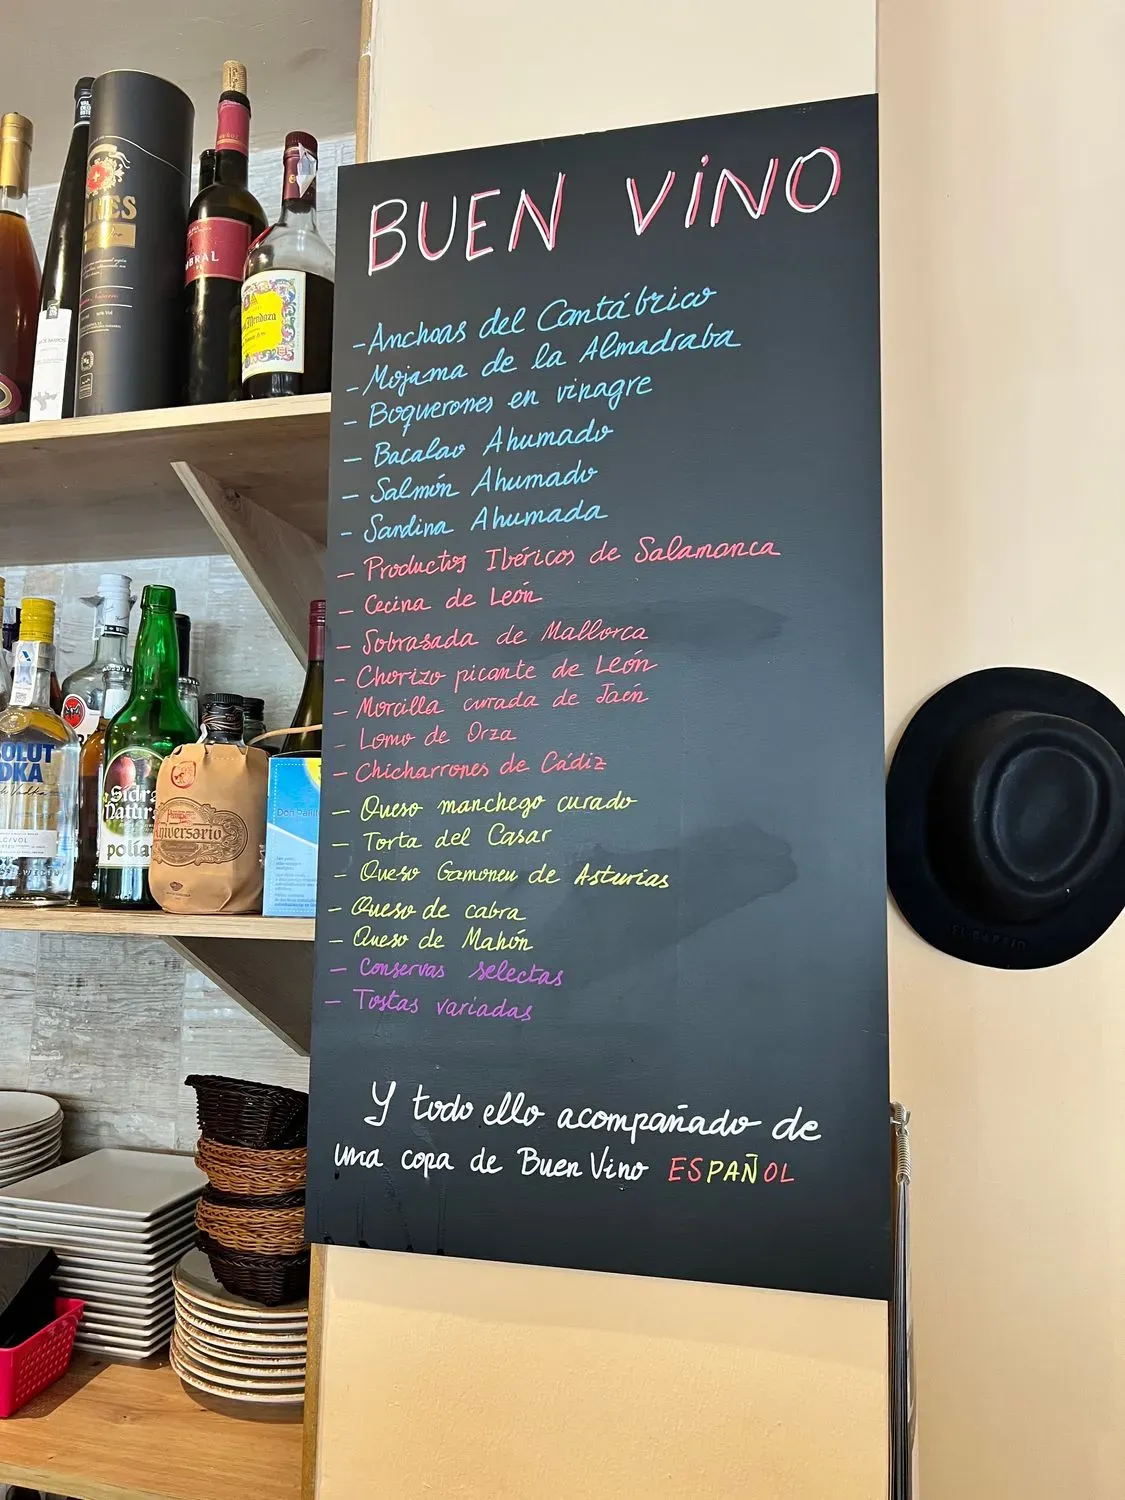 BUEN VINO
- Anchoas del Cantábrico
- Mojama de la Almadraba
- Boquerones en vinagre
- Bacalao Ahumado
- Salmón Ahumado
- Sardina Ahumada
- Productos Ibéricos de Salamanca
- Cecina de León
- Sobrasada de Mallorca
- Chorizo picante de León
- Morcilla curada de Jaén
- Lomo de Orza
- Chicharrones de Cádiz
- Queso manchego curado
- Torta del Casar
- Queso Gamoneu de Asturias
- Queso de cabra
- Queso de Mahón
- Conservas selectas
- Tostas variadas
Y todo ello acompañado de
una copa de Buen Vino ESPAÑOL
NES
BRAL
Mendoza
OLUT
DKA
Sidra
Natur
polia
Aniversario